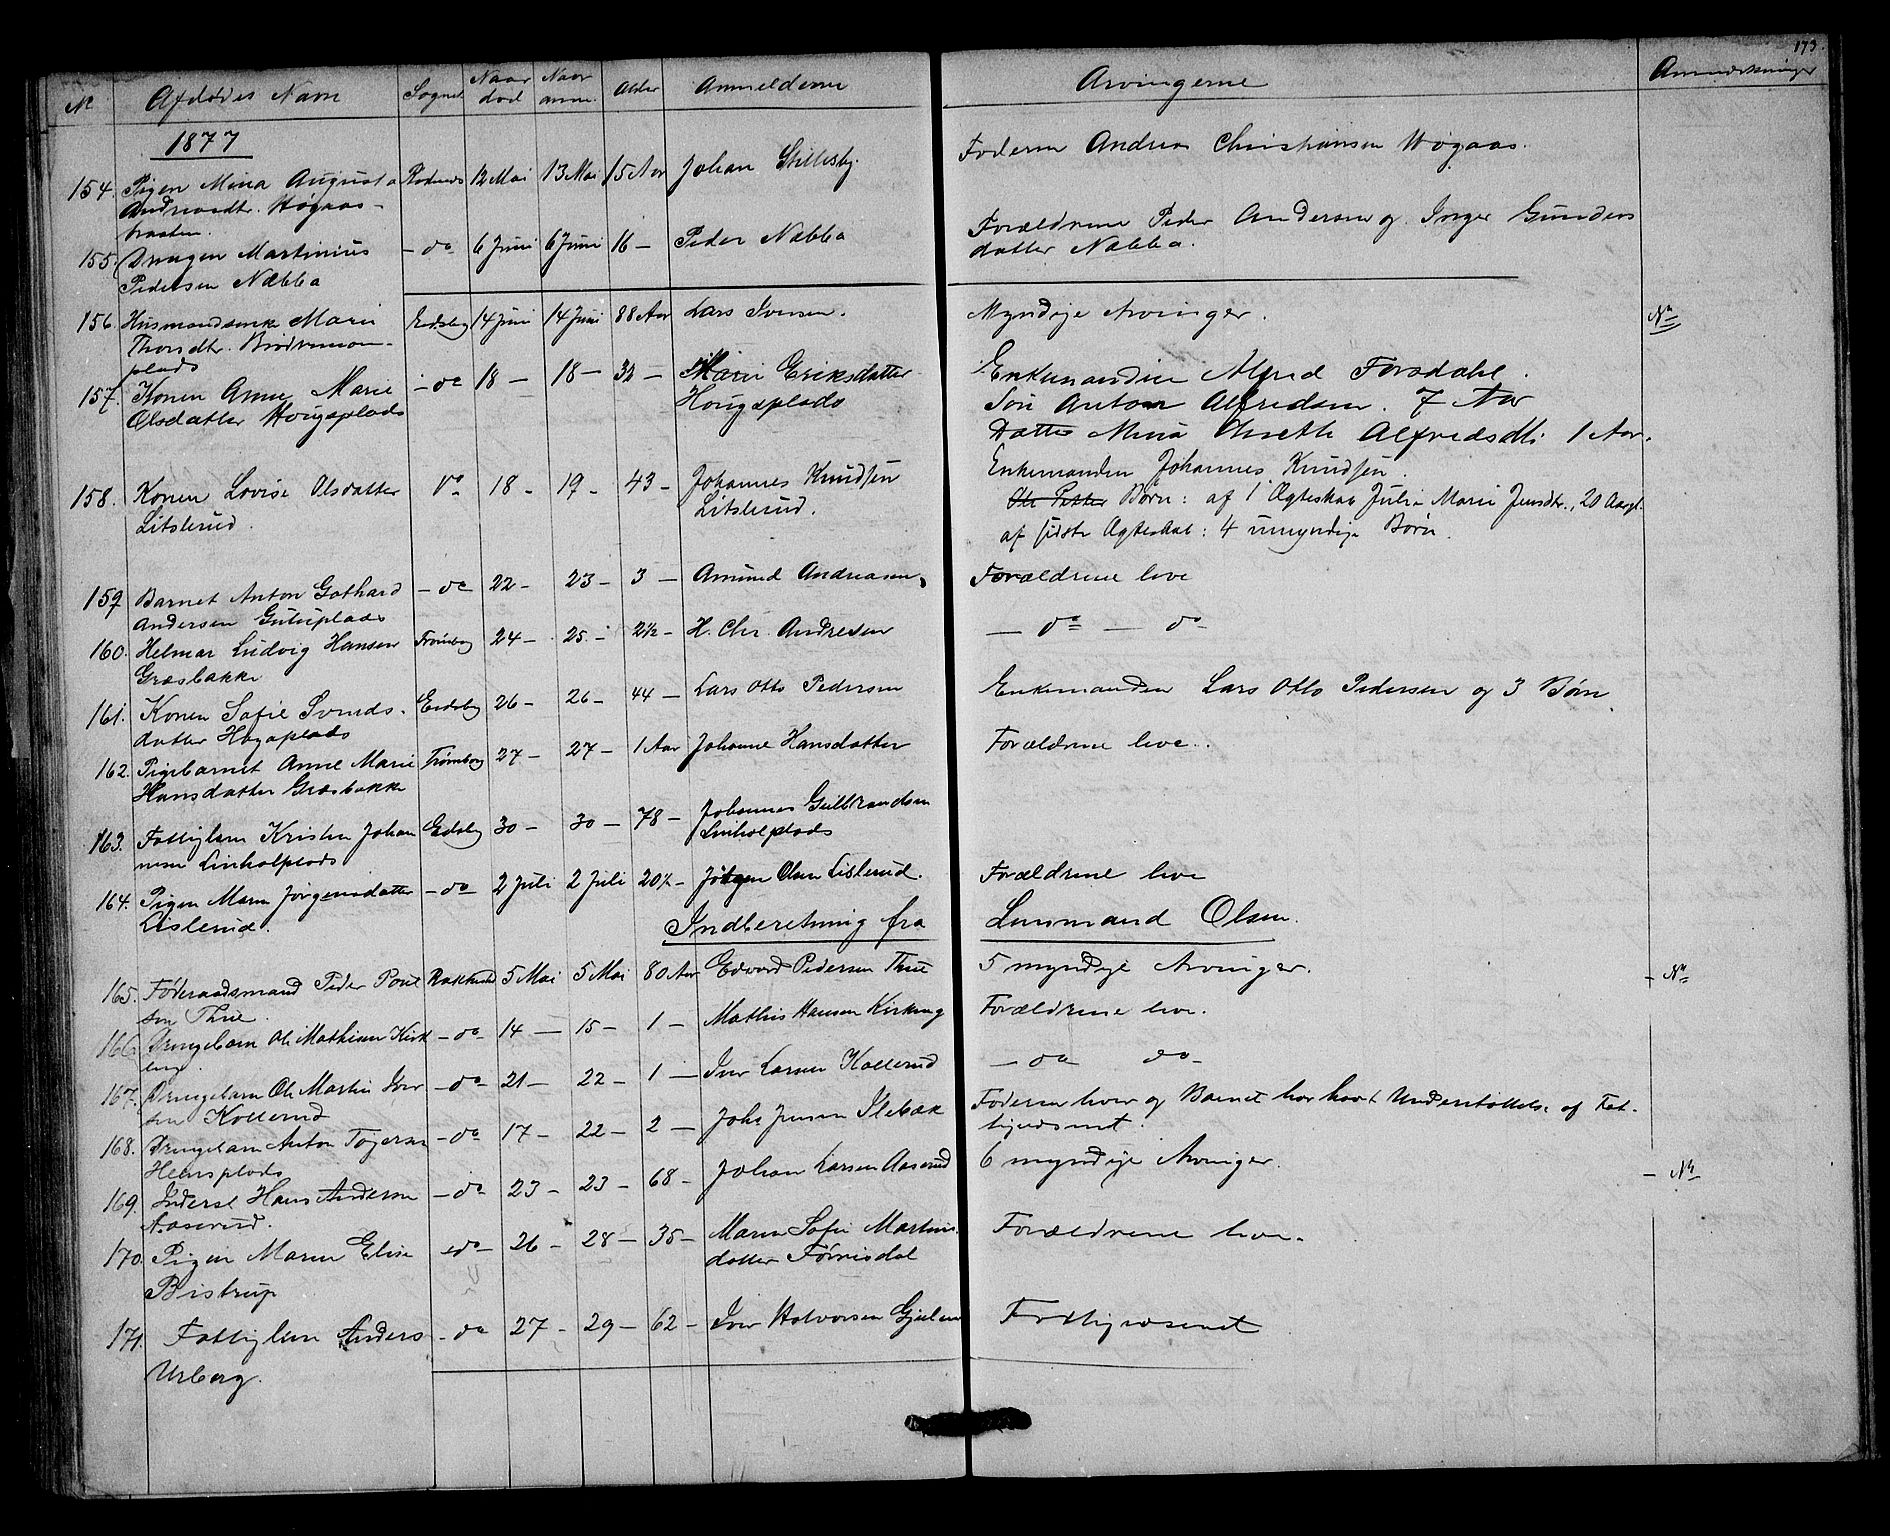 173.
No Afdødes Navn Sogned Naar død Naar anm. Alder Anmelderne Arvingerne Anmærkninger
1877
154. Pigen Mina Augusta Rødenes 12 Mai 13 Mai 15 Aar Johan Stillesby. Faderen Andreas Christiansen Høgaas.
Andreasdtr. Høgaas-
braaten.
155. Drengen Martinius - do 6 Juni 6 Juni 16 - Peder Næbba Forældrene Peder Andersen og Inger Gunders
Pedersen Næbba datter Næbba.
156. Husmandsenke Mari Eidsbg 14 Juni 14 Juni 88 Aar Lars Iversen. Myndige Arvinger.
Thorsdtr.
plads
157. Konen Anne Marie - do 18 - 18 - 32 - Mari Eriksdatter Enkemanden Alfred Forsdahl.
Olsdatter Hougsplads Hougsplads Søn Anton Alfredsen. 7 Aar
Datter Mina Alfredsdtr 1 Aar.
158. Konen Lovise Olsdatter do 18 - 19 - 43 - Johannes Knudsen Enkemanden Johannes Knudsen.
Litslerud. Litslerud. Børn: af 1 Ægteskab Julie Marie Jensdtr., 20 Aargl.
af sidste Ægteskab: 4 umyndige Børn.
159 Barnet Anton Gothard - do 22 - 23 - 3 - Amund Andreasen, Forældrene leve
Andersen
160. Helmar Ludvig Hansen Trømbog 24 - 25 - 2½ - H. Chr. Andresen - do - do -
Græsbakke
161. Konen Sofie Svends- Eidsbg 26 - 26 - 44 - Lars Otto Pedersen Enkemanden Lars Otto Pedersen og 3 Børn.
datter Hagaplads
162. Pigebarnet Anne Marie Trømbog 27 - 27 - 1 Aar Johanne Hansdatter Forældrene leve.
Hansdatter Græsbakke
163. Fattiglem Kristen Johan Eidsbg 30 - 30 - 78 - Johannes Gulbrandsen
nesen Linholplads Linholplads
164. Pigen Maren Jørgensdatter - do - 2 Juli 2 Juli 20½ - Jørgen Olsen Lislerud. Forældrene leve
Lislerud.
Indberetning fra Lensmand Olsen.
165. Føderaadsmand Peder Poul Rakkestad 5 Mai 5 Mai 80 Aar Edvard Pedersen Thue 5 myndige Arvinger.
sen Thue.
166. Drengebarn Ole Mathisen Kirk - do - 14 - 15 - 1 - Mathis Hansen Kirkeng Forældrene leve.
167. Drengebarn Ole Martin Iver - do - 21 - 22 - 1 - Iver Larsen Kollerud - do do -
sen Kollerud
168. Drengebarn Anton - do 17 - 22 - 2 - Johs Jensen Faderen lever og Barnet har havt Understøttelse af Fat-
tigvæsenet.
169. Inderst Hans Andersen - do 23 - 23 - 68 - Johan Larsen Aaserud 6 myndige Arvinger.
Aaserud.
170. Pigen Maren Elise - do - 26 - 28 - 35 - Maren Sofie Martins Forældrene leve.
Bistrup datter
171. Fattiglem Anders - do 27 - 29 - 62 - Iver Halvorsen Fattigvæsenet
Urberg.